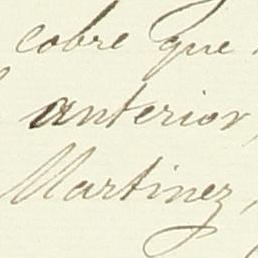 cobre que
anterior,
Martinez,